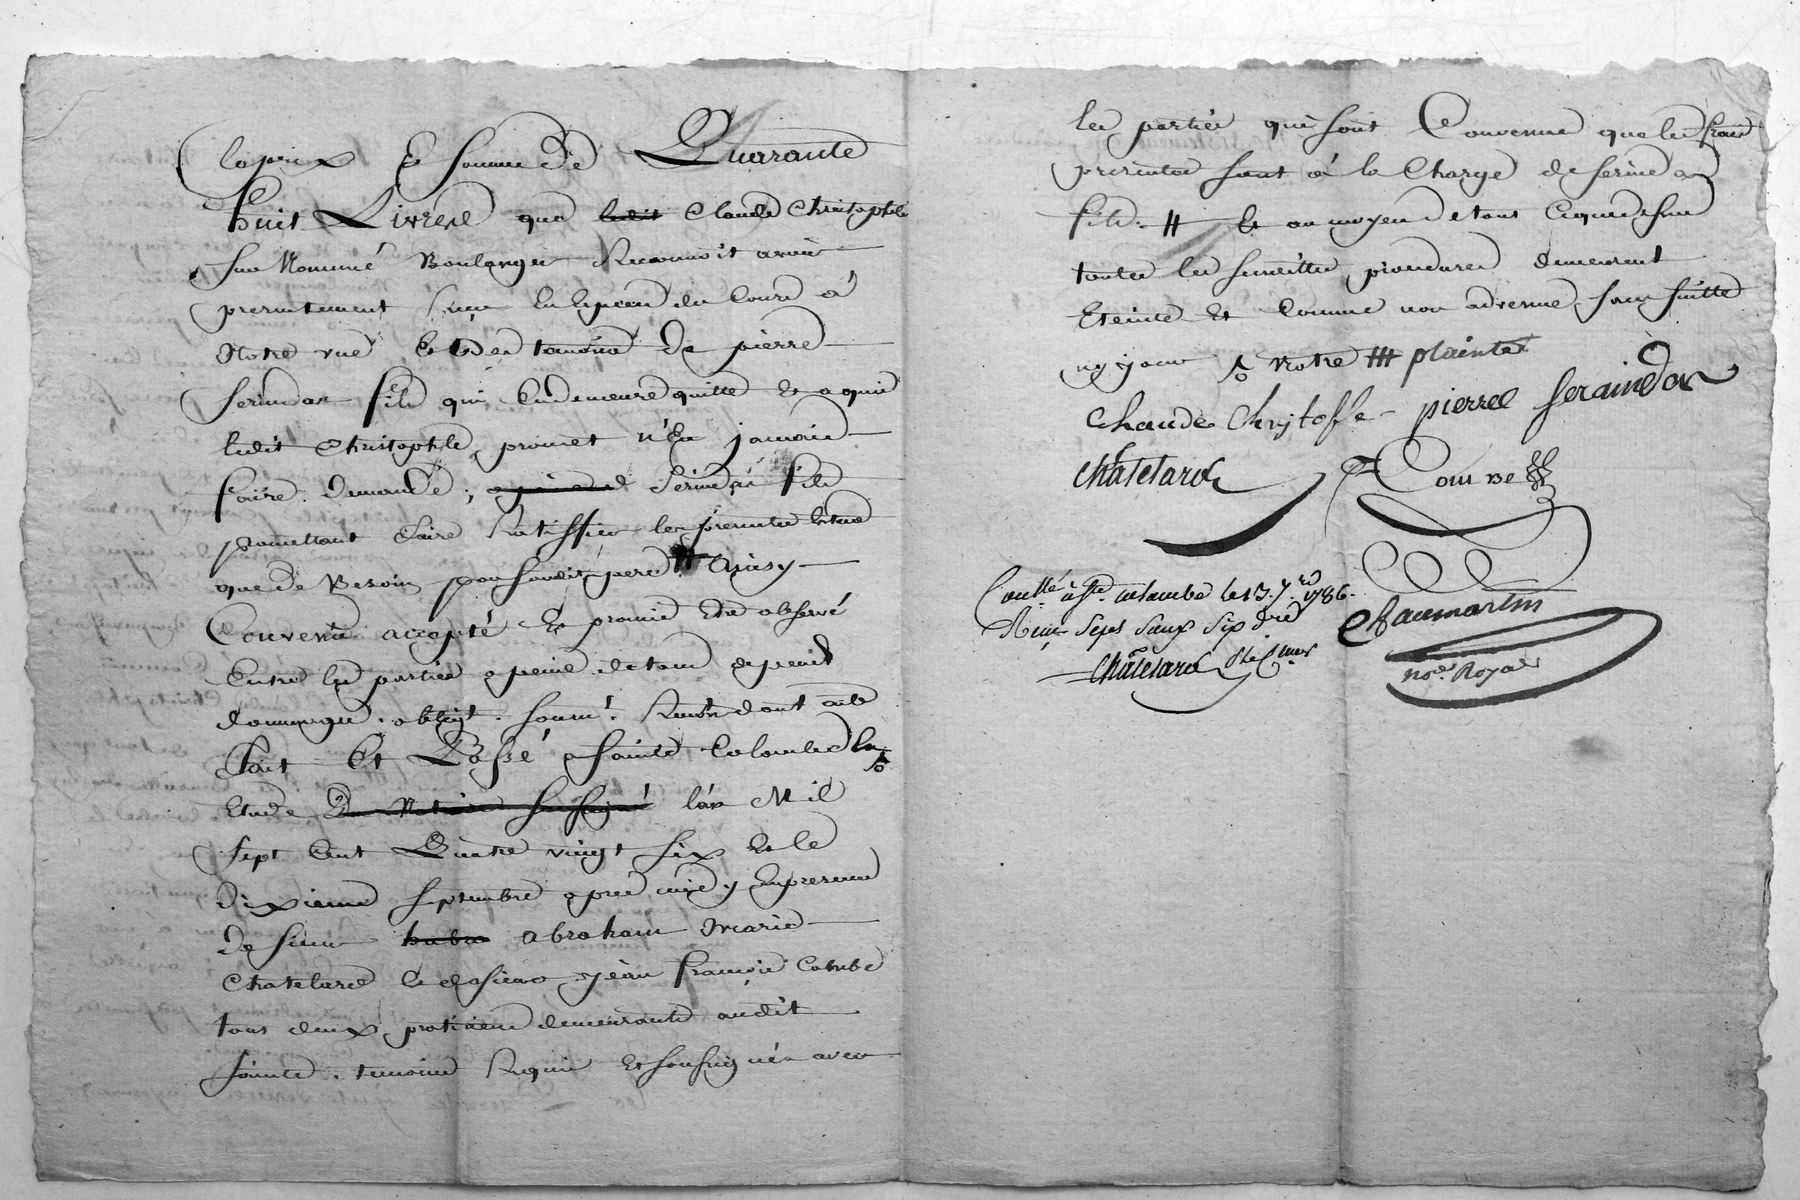 le prix & somme de Quarante
huit Livres que ledit Claude Christophle
surnommé Boulanger Reconnoit avoir
presentement reçu en Especes du Cours à
Notre vue & des temoins de pierre
serindas fils qui En demeure quitte et a quoi
ledit Christophle promet n'En jamais
faire demande, serindas fils
promettant faire Ratiffier les presentes Entant
que de Besoin par sondit pere # Ainsy
Convenu accepté Et promis Etre observé
Entre les parties a peine de tous depends
dommages. obligt. soumt. Renon dont acte
fait Et Passé a sainte Colombe En
Etude du Notaire soussigné l'an Mil
sept Cent Quatre vingt six Et le
dixieme septembre apres midy En presence
de sieur Abraham Marie
Chatelard & de sieur jean françois Combe
tous deux praticiens demeurants audit
sainte. temoins Requis Et soussignés avec
les parties qui sont Convenues que les frais
presentes sont à la Charge de serindas
fils. # Et au moyen de tous Ceque dessus
toutes les procedures demeurent
Eteintes Et Comme non advenues, sans suitte
ny jour notre ## plainte
Chaude Chrjtofle pierre seraindas
Chatelard Combe
Conllé à Ste. Colombe le 13. 7.re 1786.
Reçu Sept Saux Six drs
Chatelard
Chaumartin
nore. Royal